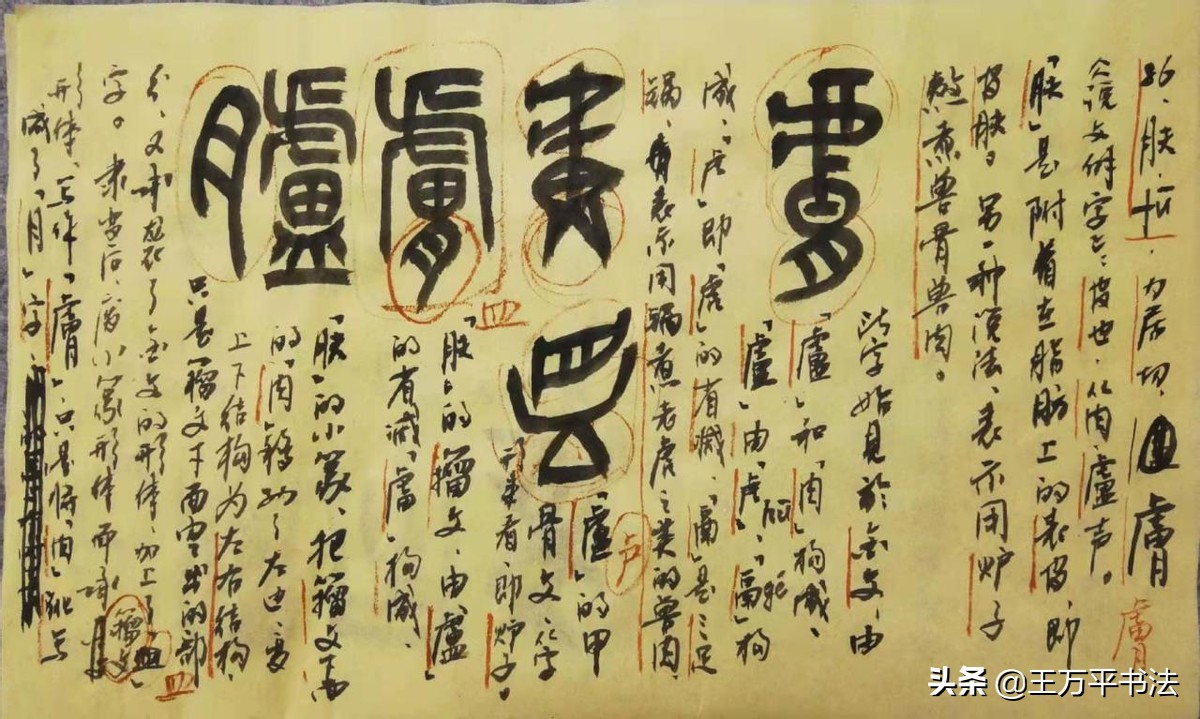 86、肤、fū、力居切、膚 膚
《说文解字》:皮也,从肉,盧声。
「肤」是附着在脂肪上的表皮,即
皮肤。另一种说法、表示用炉子
熬煮兽骨兽肉。
此字始见於金文,由
「盧」和「肉」构成、
「盧」由「虍」、「鬲」构
成、「虍」即「虎」的省减、「鬲」是三足
锅、表示用锅煮老虎之类的兽肉、
「盧」的甲
骨文、从字
形来看、即炉子。
「肤」的籀文,由「盧」
的省减「膚」构成。
「肤」的小篆,把籀文下面
的「肉」移到了左边、变
上下结构为左右结构、
只是籀文下面空出的部
分、又承袭了金文的形体、加上了「皿」
字。隶变后,废小篆形体而承籀文
形体、写作「膚」只是将「肉」
减了「月」字、
皿
头条 @王万平书法